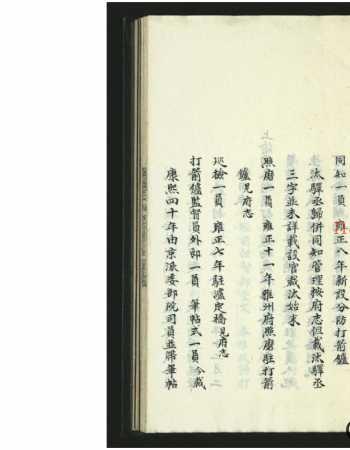 同知一員雍正八年新設分防打箭鑪
汰驛丞歸併同知管理按府志但載汰驛丞
三字並未詳載設官裁汰始末
照磨一員雍正十一年雅州府照磨駐打箭
鑪見府志
巡檢一員雍正七年駐瀘定橋見府志
打箭鑪監督員外郎一員筆帖式一員今裁
康熙四十年由京派委部院司員並帶筆帖